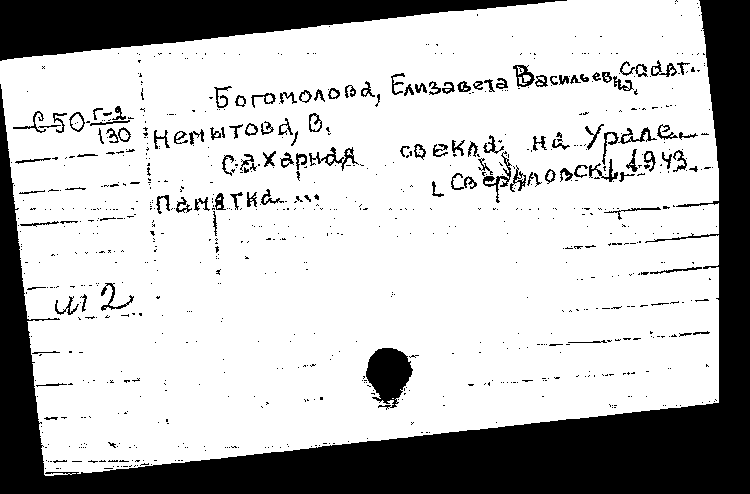 Богомолова, Елизавета Васильевна, соавт.
С50 Г-2/130
Немытова, В.
Сахарная свекла на Урале.
Памятка ... [Свердловск], 1943.
ш 2